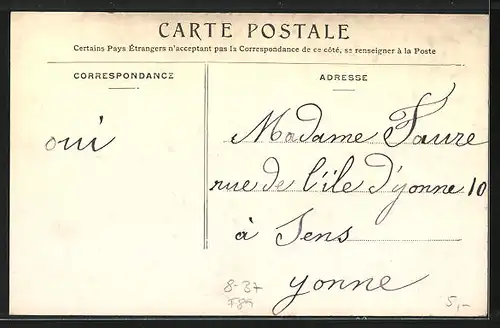 CARTE POSTALE
Certains Pays Étrangers n'acceptant pas la Correspondance de ce côté, se renseigner à la Poste
CORRESPONDANCE
ADRESSE
oui
Madame Faure
rue de l'ile d'yonne 10
à Sens
yonne
8-37
F89
5,-